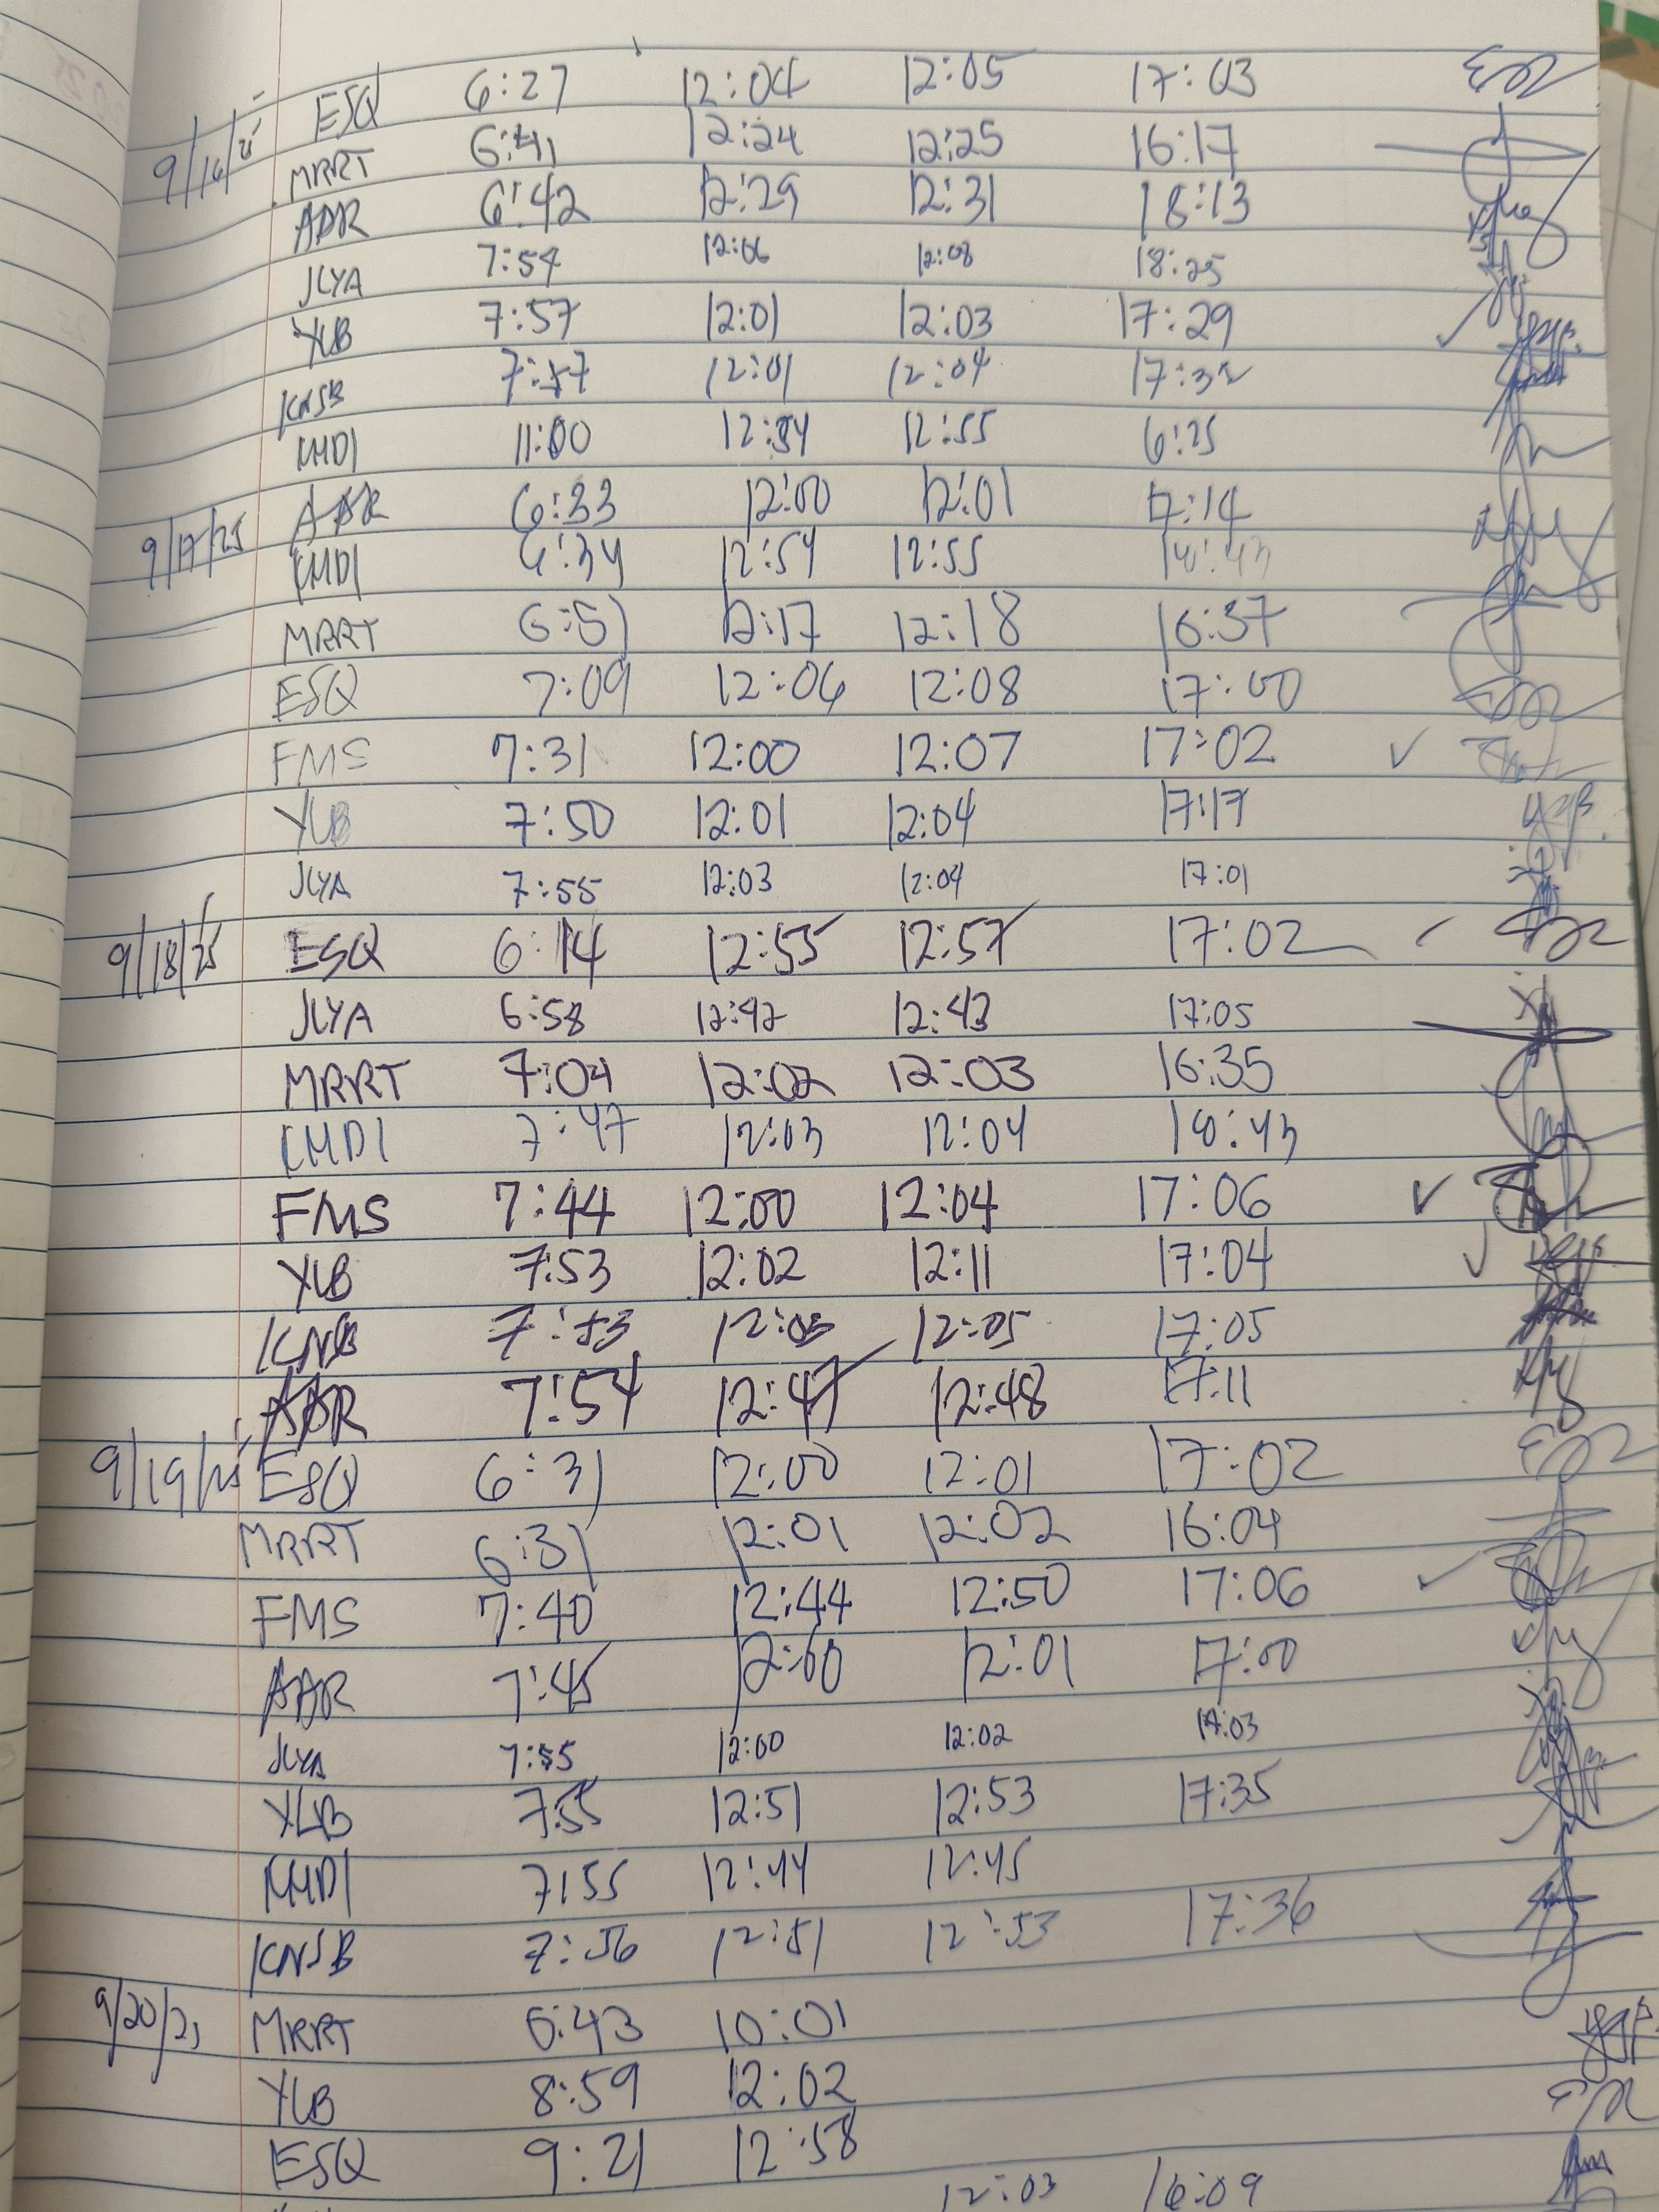 9/16/25 ESQ 6:27 12:04 12:05 17:03
MRRT 6:41 12:24 12:25 16:17
ADR 6:42 12:29 12:31 18:13
JLYA 7:54 12:06 12:08 18:25
YLB 7:57 12:01 12:03 17:29
KNSB 7:57 12:01 12:04 17:32
LMDI 11:00 12:54 12:55 6:25
9/17/25 AAR 6:33 12:00 12:01 17:14
LMDI 6:34 12:54 12:55
MRRT 6:51 12:17 12:18 16:37
ESQ 7:09 12:06 12:08 17:00
FMS 7:31 12:00 12:07 17:02
YLB 7:50 12:01 12:04 17:17
JLYA 7:55 12:03 12:04 17:01
9/18/25 ESQ 6:14 12:55 12:57 17:02
JLYA 6:58 12:42 12:43 17:05
MRRT 7:04 12:02 12:03 16:35
LMDI 7:47 12:03 12:04 18:43
FMS 7:44 12:00 12:04 17:06
YLB 7:53 12:02 12:11 17:04
KNSB 7:53 12:03 12:05 17:05
ADR 7:54 12:47 12:48 17:11
9/19/25 ESQ 6:31 12:00 12:01 17:02
MRRT 6:31 12:01 12:02 16:04
FMS 7:40 12:44 12:50 17:06
AAR 7:45 12:00 12:01 17:00
JLYA 7:55 12:00 12:02 17:03
YLB 7:55 12:51 12:53 17:35
LMDI 7:55 12:44 12:45
KNSB 7:56 12:51 12:53 17:36
9/20/25 MRRT 6:43 10:01
YLB 8:59 12:02
ESQ 9:21 12:58
12:03 16:09